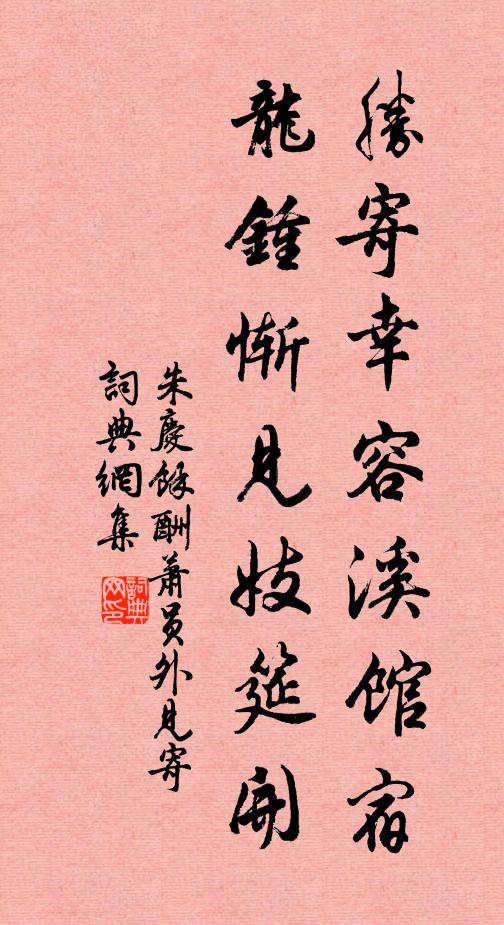 勝寄幸容溪館宿
龍鍾慚見妓筵開
朱慶餘酬蕭員外見寄
詞典網集
詞典網印